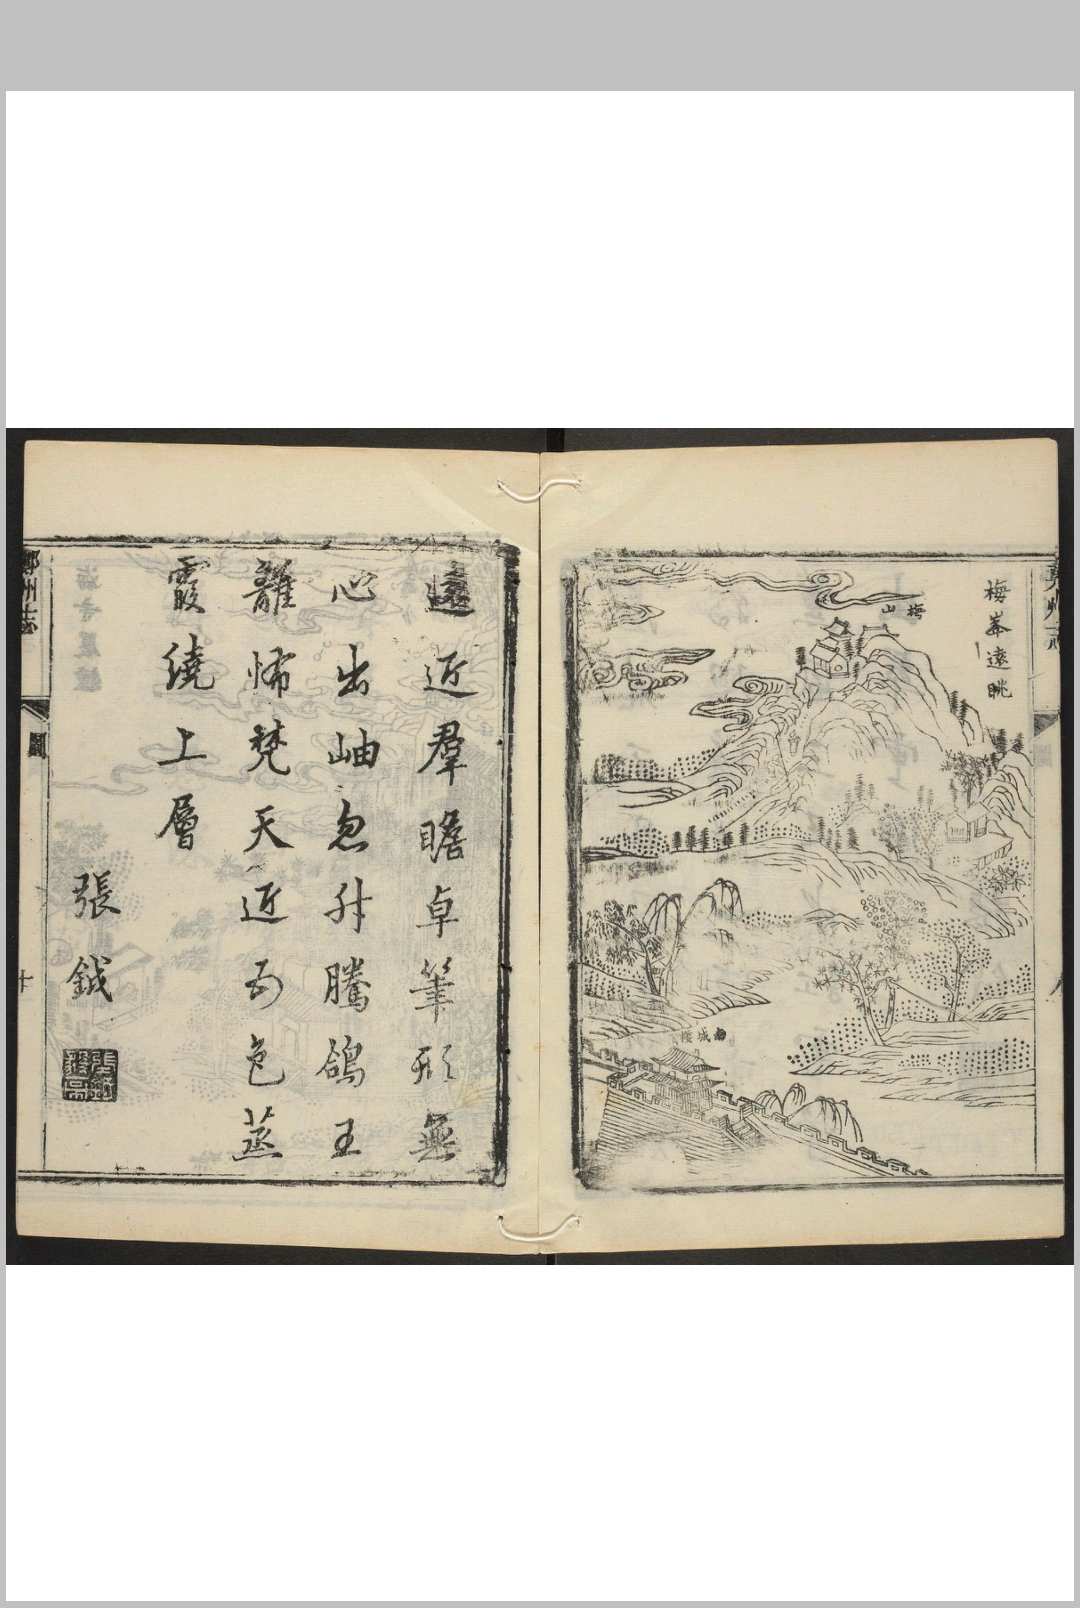 梅峯遠眺
梅山
南城樓
遠近羣瞻卓筆形無
心出岫忽升騰鴿王
離怖梵天近五色蒸
霞繞上層
張鉞
鄭州志
圖
十